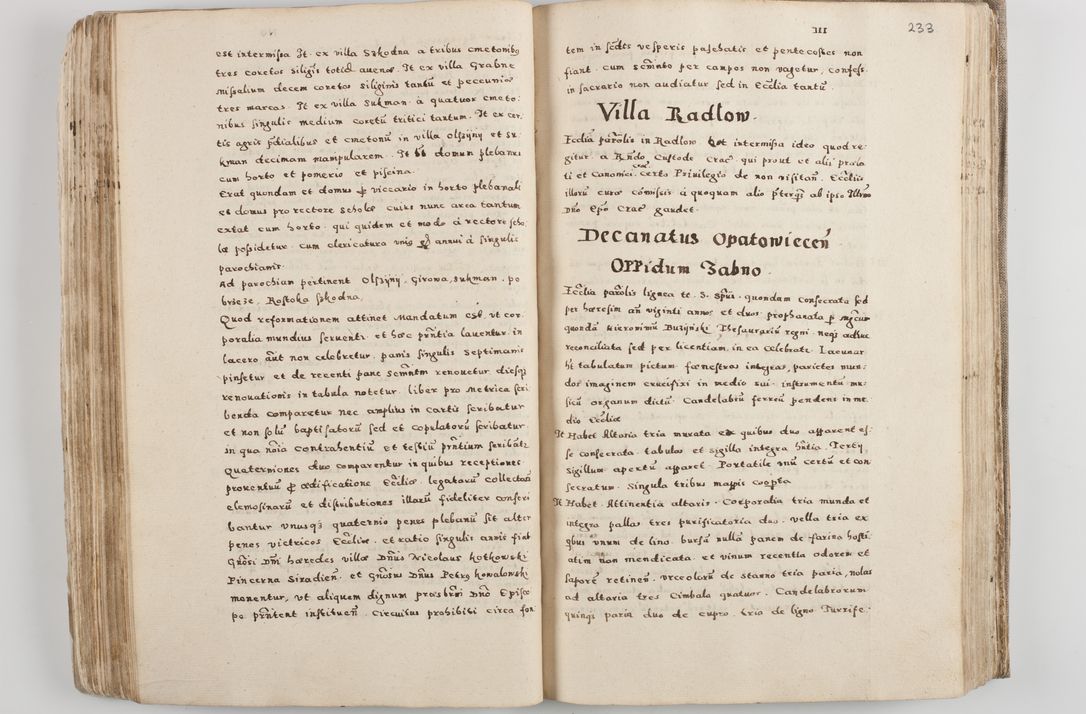 est intermissa It. ex villa Szkodna a tribus cmetonibꝫ
tres coretos siliginis totid. auenae. It ex villa Grabne
missalium decem coretos siliginis tantū et peccunia
tres marcas. It ex villa Sukman à quatuor cmeto:
nibus singulis medium coretū tritici tantum. It ex cer
tis agris p̄dialibus et cmetonū in villa Olszyny et Su
kman decimam manipularem. It domum plebanus
cum horto et pomerio et piscina.
Erat quondam et domus ꝓ viccario in horto plebanali
et domus pro rectore scholae cuius nunc area tantum
extat cum horto. qui quidem et modo à rectore scho
lae possidetur. cum clericatura unis annui à singulis
parochianis.
Ad parochiam pertinent Olszyny, Girowa, Sukman. po
brzeze, Rostoka Szkodna,
Quod reformationem attinet Mandatum est. ut cor
poralia mundius seruentur. et haec pn̄tia lauentur. in
lacero aūt non celebretur. panis singulis septimanis
pinsetur et de recenti pane Scm̄ntm renouetur diesqꝫ
renouationis in tabula notetur. liber pro metrica scri
benda comparetur nec amplius in cartis scribatur
et non solū baptisatorū sed et copulatorū scribatur
in qua nōia contrahentiū et testiū pn̄tium scribātr
Quaterniones duo comparentur in quibus receptiones
prouentuū ꝓ aedificatione Ecc̄liae. legatorū collectarū
elemosinarū et distributiones illarū fideliter conscri
bantur unusqꝫ quaternio penes plebanū sit alter
penes vitricos Ecc̄liae. et ratio singulis annis fiat
Gn̄osi Dn̄i haeredes villae Dn̄us Nicolaus Kotkowski
Pincerna Siradien̄. et Gn̄osus Dn̄us Petrꝫ Kowalowski
monentur, ut aliquem dignum praesbr̄m Dn̄o Episco
po pn̄tent instituen̄. Circuitus prohibiti circa fon
III
233
tem in sc̄dis vesperis paschatis et pentecostes non
fiant. cum Scm̄nto per campos non vagetur, confess.
in sacrario non audiatur sed in Ecc̄lia tantū
Villa Radlow.
Ecc̄lia par̄olis in Radlow intermissa ideo quod re:
gitur a Rn̄do Custode Crac. qui prout et alij praela
ti et Canonici Crac. certo Priuilegio de non visitan̄. Ecc̄lijs
illorū curae com̄issis à quoquam alio p̄terqꝫ ab ipso Illm̄o
Dn̄o Ep̄o Crac gaudet.
Decanatus Opatowiecen̄
Oppidum Zabno.
Ecc̄lia par̄olis lignea te. S. Sp̄us. quondam consecrata sed
per haeresim an̄ viginti annos et duos prophanata ꝓ mgn̄cum
quondā Hieronimū Buzynski Thesaurariū regni. neqꝫ adhuc
reconciliata sed per licentiam in ea celebratr. Lacunar
ht̄ tabulatum pictum fenestras integras, parietes mun
dos imaginem crucifixi in medio sui. instrumentū mu
sicū organum dictū. Candelabrū ferreū pendens in me
dio Ecc̄liae
It Habet Altaria tria murata ex quibus duo apparent es:
se consecrata. tabulas et sigilla integra hn̄tia. Tertij
sigillum apertū apparet. Portatile unū certū et con
secratum. Singula tribus mappis coop̄ta
It Habet. Attinentia altaris. Corporalia tria munda et
integra pallas tres purificatoria duo. vella tria ex
qbus unum de lino. bursā nullā panem de farina hosti
atim non mendicata. et vinum recentia odorem et
saporē retinen̄. urceolorū de stanno tria paria, nolas
ad altaria tres Cimbala quatuor. Candelabrorum
quinqꝫ paria duo de cupro. tria de ligno Turrife.